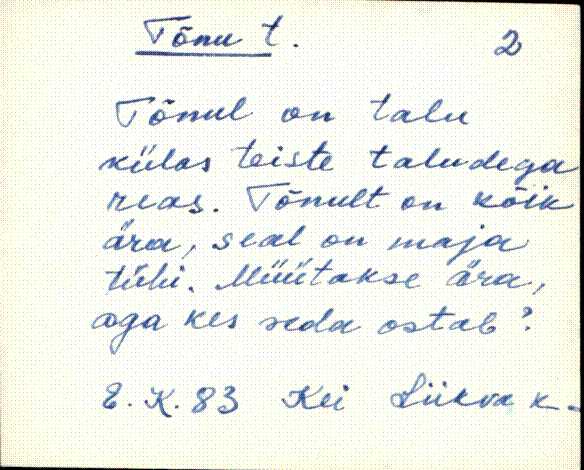 Tõnu t. 2
Tõnul on talu
külas teiste taludega
reas. Tõnult on kõik
ära, seal on maja
tühi. Müütakse ära,
aga kes seda ostab?
E.K. 83 Kei Liikva k.